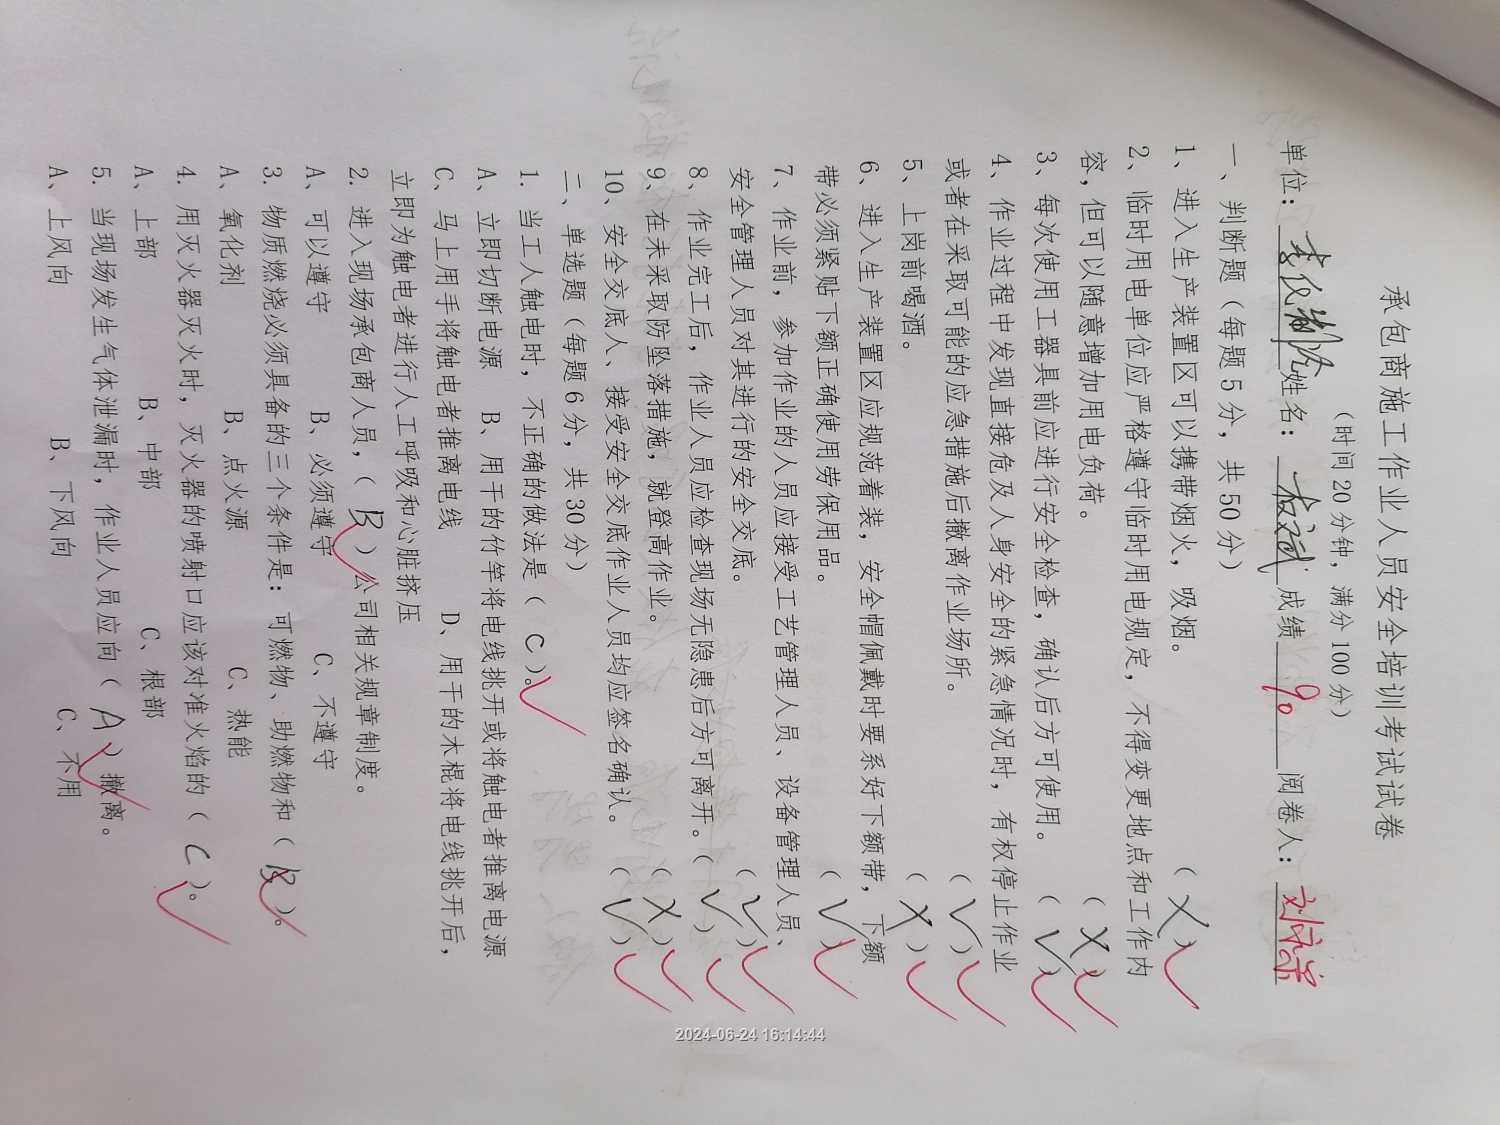 承包商施工作业人员安全培训考试试卷
（时间20分钟，满分100分）
单位： 姓名： 成绩 90 阅卷人：
一、判断题（每题5分，共50分）
1、进入生产装置区可以携带烟火，吸烟。（ X ）
2、临时用电单位应严格遵守临时用电规定，不得变更地点和工作内
容，但可以随意增加用电负荷。（ X ）
3、每次使用工器具前应进行安全检查，确认后方可使用。（ √ ）
4、作业过程中发现直接危及人身安全的紧急情况时，有权停止作业
或者在采取可能的应急措施后撤离作业场所。（ √ ）
5、上岗前喝酒。（ X ）
6、进入生产装置区应规范着装，安全帽佩戴时要系好下额带，下额
带必须紧贴下额正确使用劳保用品。（ √ ）
7、作业前，参加作业的人员应接受工艺管理人员、设备管理人员、
安全管理人员对其进行的安全交底。（ √ ）
8、作业完工后，作业人员应检查现场无隐患后方可离开。（ √ ）
9、在未采取防坠落措施，就登高作业。（ X ）
10、安全交底人、接受安全交底作业人员均应签名确认。（ √ ）
二、单选题（每题6分，共30分）
1. 当工人触电时，不正确的做法是（ C ）。
A、立即切断电源 B、用干的竹竿将电线挑开或将触电者推离电源
C、马上用手将触电者推离电线 D、用干的木棍将电线挑开后，
立即为触电者进行人工呼吸和心脏挤压
2. 进入现场承包商人员，（ B ）公司相关规章制度。
A、可以遵守 B、必须遵守 C、不遵守
3. 物质燃烧必须具备的三个条件是：可燃物、助燃物和（ B ）。
A、氧化剂 B、点火源 C、热能
4. 用灭火器灭火时，灭火器的喷射口应该对准火焰的（ C ）。
A、上部 B、中部 C、根部
5. 当现场发生气体泄漏时，作业人员应向（ A ）撤离。
A、上风向 B、下风向 C、不用
2024-06-24 16:14:44